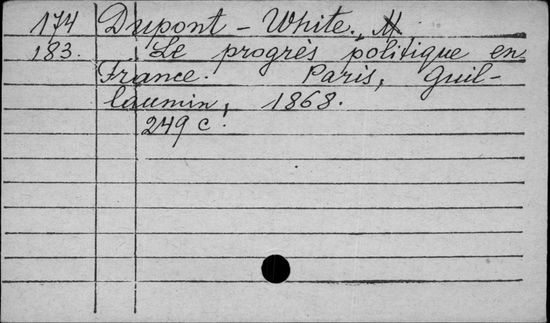 174 Dupont - White., M.
183. Le progrès politique en
France. Paris, Guil-
laumin, 1868.
249 c.